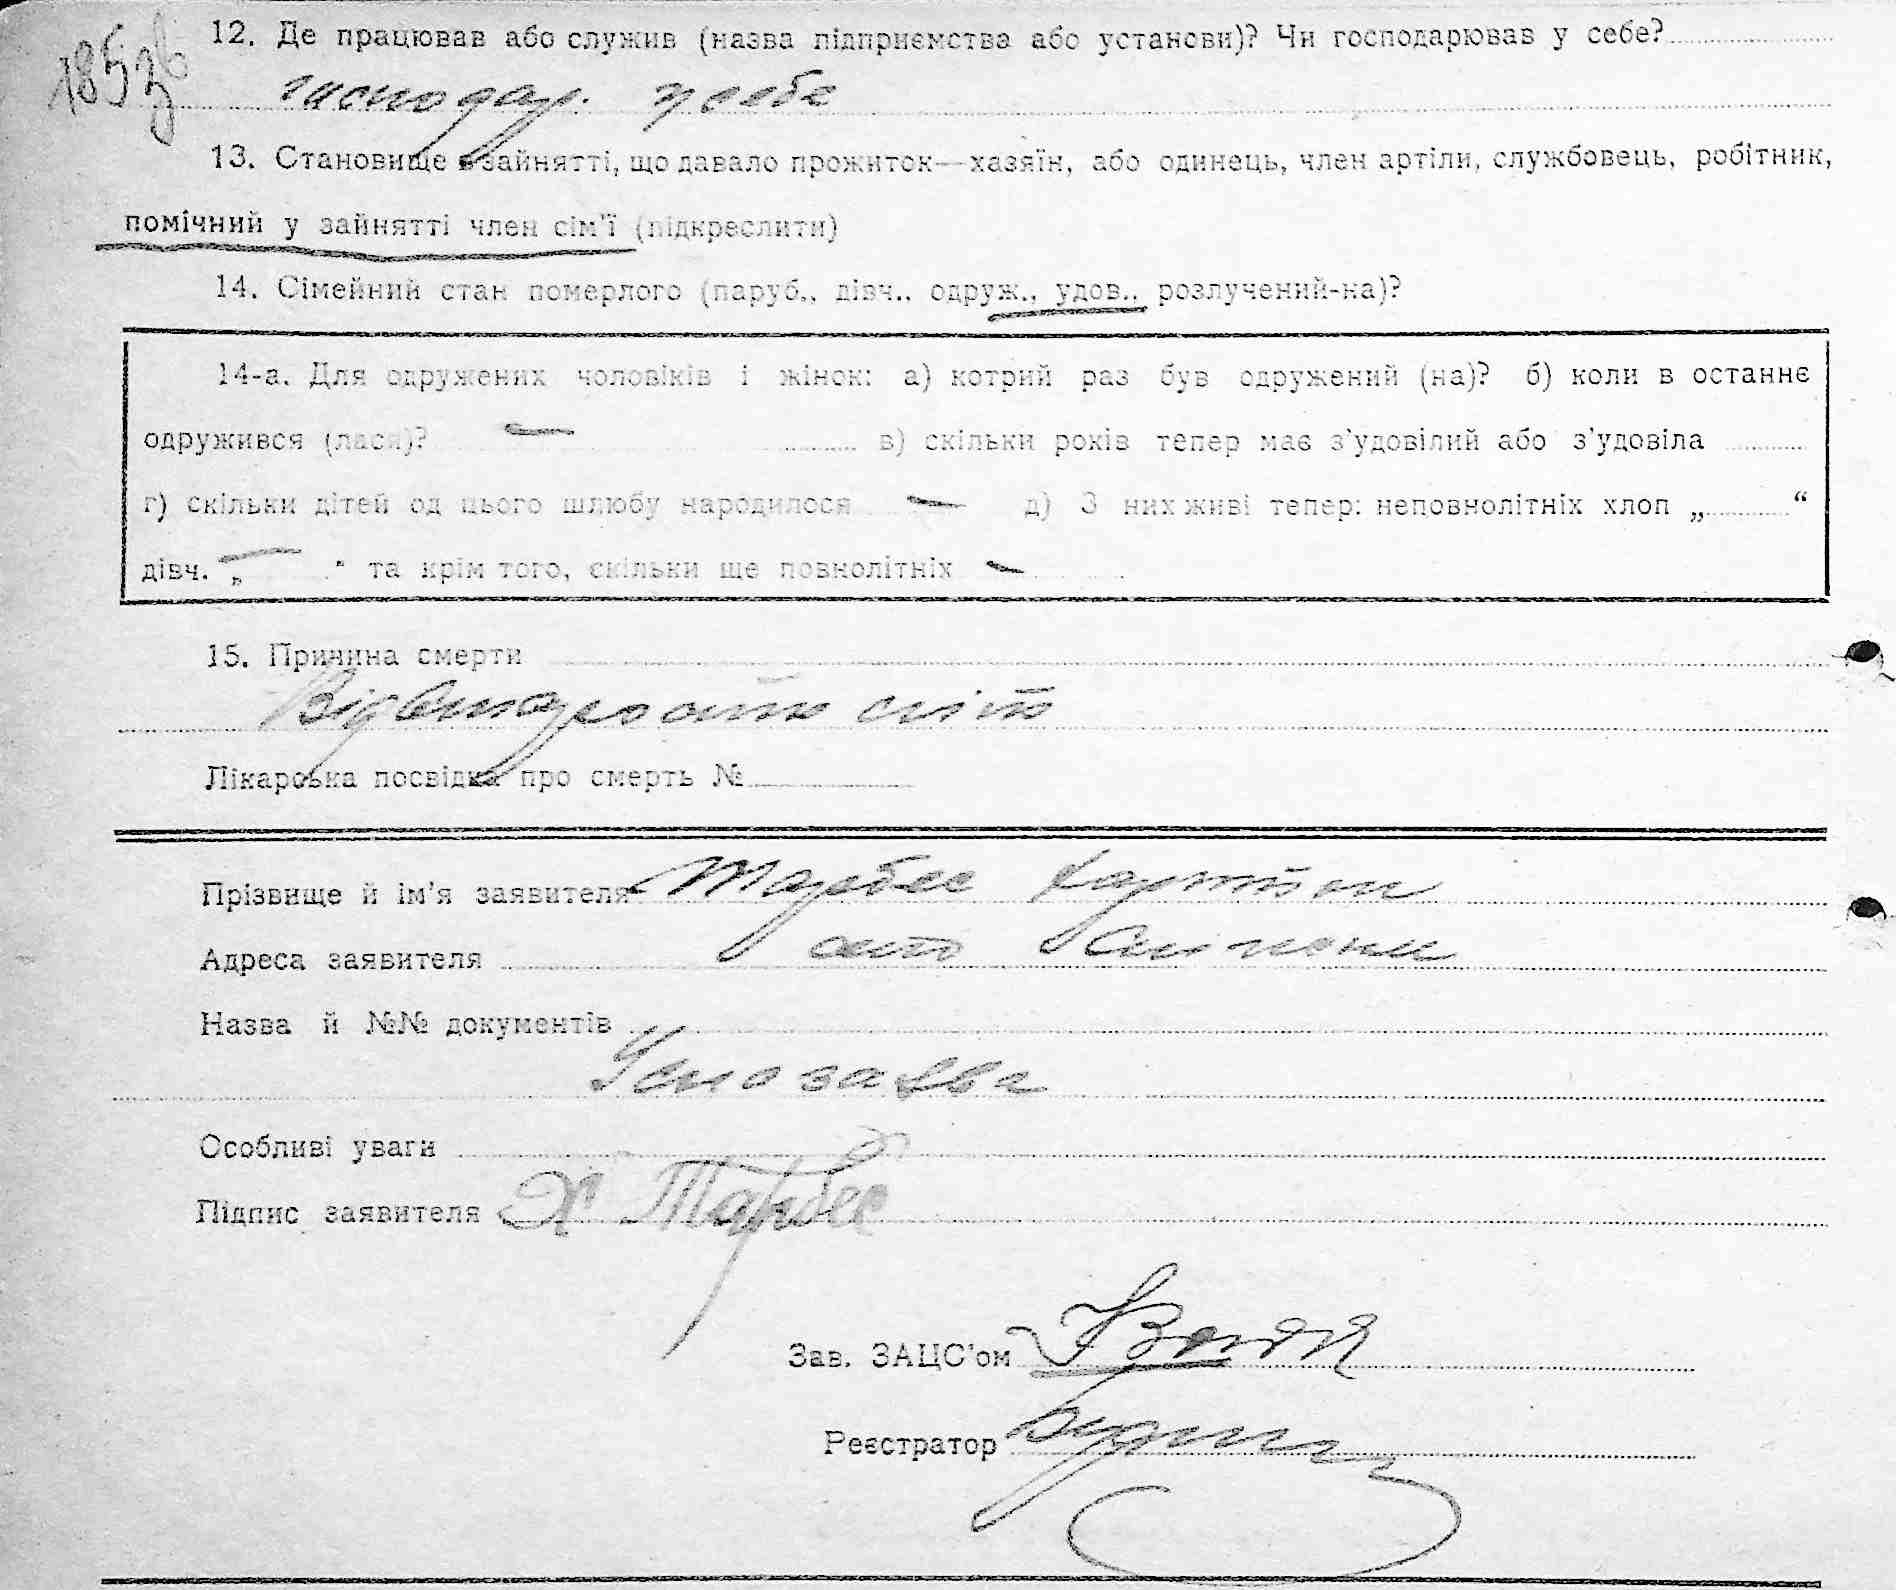 185зв
12. Де працював або служив (назва підприємства або установи)? Чи господарював у себе?
господар. у себе
13. Становище в зайнятті, що давало прожиток—хазяїн, або одинець, член артіли, службовець, робітник,
помічний у зайнятті член сім'ї (підкреслити)
14. Сімейний стан померлого (паруб., дівч., одруж., удов., розлучений-на)?
14-а. Для одружених чоловіків і жінок: а) котрий раз був одружений (на)? б) коли в останнє
одружився (лася)? — в) скільки років тепер має з'удовілий або з'удовіла
г) скільки дітей од цього шлюбу народилося — д) З них живі тепер: неповнолітніх хлоп „ “
дівч. „ — “ та крім того, скільки ще повнолітніх —
15. Причина смерти
Від
Лікарська посвідка про смерть №
Прізвище й ім'я заявителя
Адреса заявителя село
Назва й №№ документів
Усно заява
Особливі уваги
Підпис заявителя Х Тарбес
Зав. ЗАЦС'ом
Реєстратор